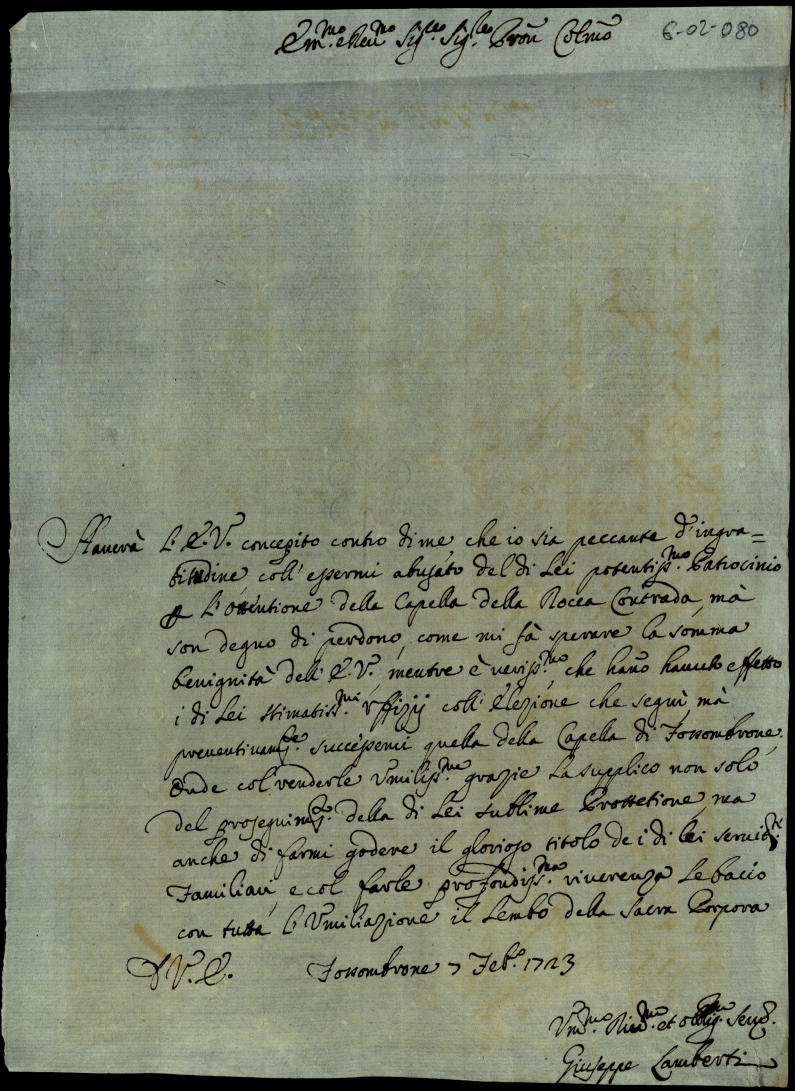 Em.mo e Reu.mo Sig.re Sig.re Pron Colmo 6-02-080
Hauerà L'E.V. concepito contro di me che io sia peccante d'ingra=
titudine coll'essermi abusato del di Lei potentiss.mo Patrocinio
p L'ottentione della Capella della Rocca Contrada, mà
son degno di perdono, come mi fà sperare la somma
benignità dell'E.V., mentre è veriss.mo, che hano hauuto effetto
i di Lei stimatiss.mi Vffizij coll'Elezione che seguì, mà
preuentivam.te successemi quella della Capella di Fossombrone.
Onde col renderle Vmiliss.me grazie la supplico non solo
del proseguim.to della di Lei sublime Prottetione, ma
anche di farmi godere il glorioso titolo de i di lei seruit.ri
Familiari, e col farle profondiss.ma riuerenza Le bacio
con tutta l'Vmiliazione il Lembo della Sacra Porpora
D V.E. Fossombrone 7 Feb.o 1723
Vm.mo Diu.mo et obblig.mo Seru.
Giuseppe Lamberti